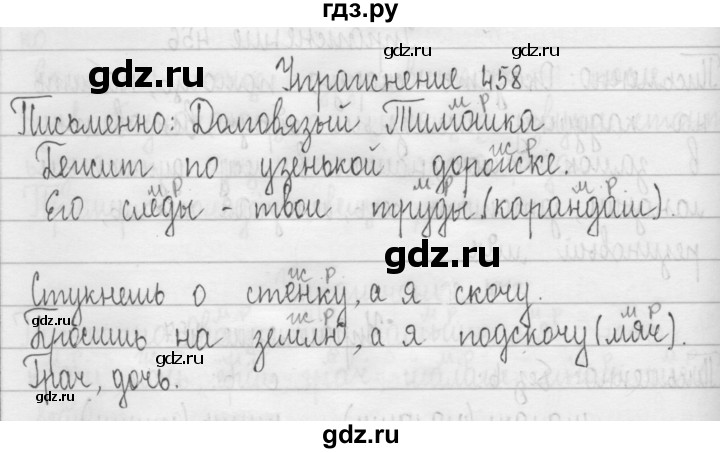 гдз.ру
Упражнение 458
м р
Письменно: Долговязый Тимошка
ж р
Бежит по узенькой дорожке.
м р м р м р
Его следы - твои труды (карандаш).
ж р
Стукнешь о стенку, а я скочу.
ж р м р
Бросишь на землю, а я подскочу (мяч).
Грач, дочь.
gdz.ru
gdz.ru
gdz.ru
gdz.ru
gdz.ru
gdz.ru
gdz.ru
gdz.ru
gdz.ru
gdz.ru
gdz.ru
gdz.ru